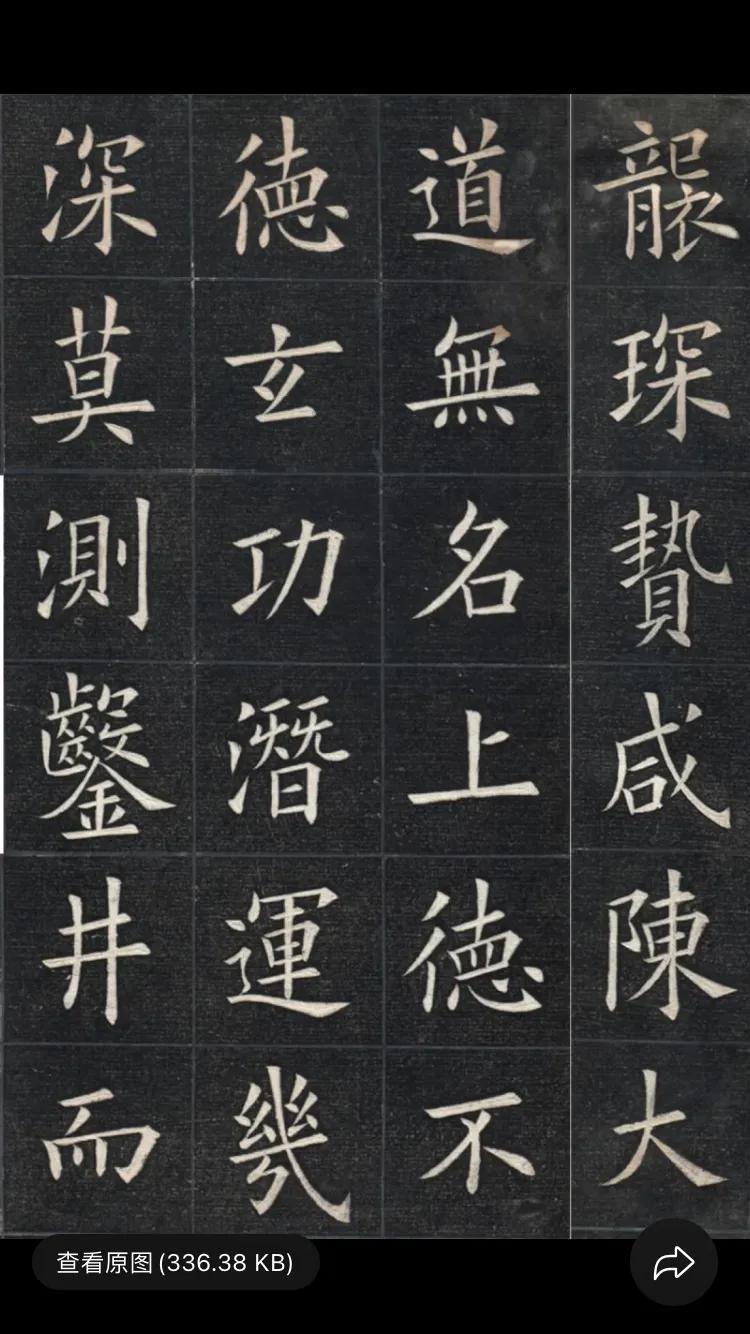 襲琛贄咸陳大
道無名上德不
德玄功潛運幾
深莫測鑿井而
查看原图(336.38 KB)